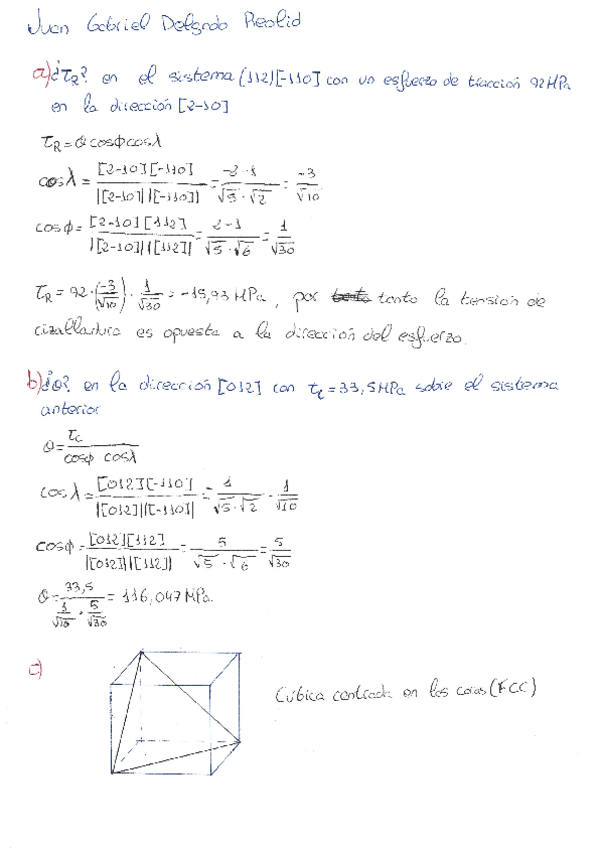 Juan Gabriel Delgado Reolid
a) ¿τR? en el sistema (112)[-110] con un esfuerzo de tracción 92 MPa
en la dirección [2-10]
τR = θ cosϕ cosλ
cosλ = [2-10][-110] / |[2-10]||[-110]| = -2-1 / √5·√2 = -3/√10
cosϕ = [2-10][112] / |[2-10]||[112]| = 2-1 / √5·√6 = 1/√30
τR = 92·(-3/√10)·1/√30 = -15,93 MPa, por tanto la tension de
cizalladura es opuesta a la dirección del esfuerzo.
b) ¿θ? en la dirección [012] con τc = 33,5 MPa sobre el sistema
anterior
θ = τc / cosϕ cosλ
cosλ = [012][-110] / |[012]||[-110]| = 1 / √5·√2 = 1/√10
cosϕ = [012][112] / |[012]||[112]| = 5 / √5·√6 = 5/√30
θ = 33,5 / 1/√10 · 5/√30 = 116,047 MPa.
c)
Cúbica centrada en las caras (FCC)